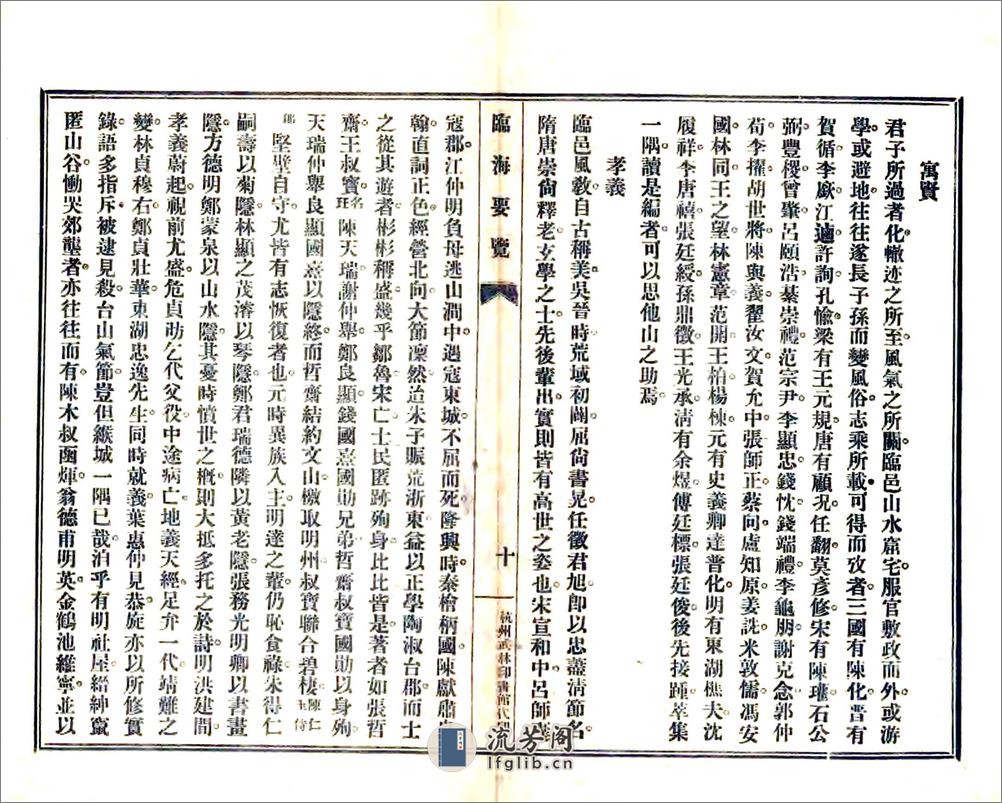 寓賢
君子所過者化轍迹之所至風氣之所關臨邑山水窟宅服官敷政而外或游
學或避地往往遂長子孫而變風俗志乘所載可得而攷者三國有陳化晋有
賀循李廞江逌許詢孔愉梁有王元規唐有顧况任翻莫彥修宋有陳瓘石公
弼豐稷曾肇呂頤浩綦崇禮范宗尹李顯忠錢忱錢端禮李龜朋謝克念郭仲
荀李擢胡世將陳與義翟汝文賀允中張師正蔡向盧知原姜詵米敦儒馮安
國林同王之望林憲章范開王柏楊棟元有史義卿達普化明有東湖樵夫沈
履祥李唐禧張廷綬孫鼎徵王光承淸有余煌傅廷標張廷俊後先接踵萃集
一隅讀是編者可以思他山之助焉
孝義
臨邑風敎自古稱美吳晉時荒域初闢屈尙書晃任徵君旭卽以忠藎淸節名
隋唐崇尙釋老玄學之士先後輩出實則皆有高世之姿也宋宣和中呂師
寇郡江仲明負母逃山澗中遇寇東城不屈而死隆興時秦檜柄國陳獻肅
翰直詞正色經營北向大節凛然造朱子賑荒浙東益以正學陶淑台郡而士
之從其遊者彬彬稱盛幾乎鄒魯宋亡士民匿跡殉身比比皆是著者如張哲
齋王叔寶名珏陳天瑞謝仲舉鄭良顯錢國熹國勛兄弟哲齋叔寶國勛以身殉
天瑞仲舉良顯國熹以隱終而哲齋結約文山檄取明州叔寶聯合碧棲陳仁玉侍
郎堅壁自守尤皆有志恢復者也元時異族入主明達之輩仍恥食祿朱得仁
嗣壽以菊隱林顯之茂濬以琴隱鄭君瑞德隣以黃老隱張務光明卿以書畫
隱方德明鄭蒙泉以山水隱其憂時憤世之槪則大抵多托之於詩明洪建間
孝義蔚起視前尤盛危貞昉乞代父役中途病亡地義天經足弁一代靖難之
變林貞穆右鄭貞壯華東湖忠逸先生同時就義葉惠仲見恭旋亦以所修實
錄語多指斥被逮見殺台山氣節豈但緱城一隅已哉洎乎有明社屋縉紳竄
匿山谷慟哭郊壟者亦往往而有陳木叔函煇翁德甫明英金鶴池維寧並以
臨海要覽
十
杭州武林印書館代
流芳阁
lfglib.cn